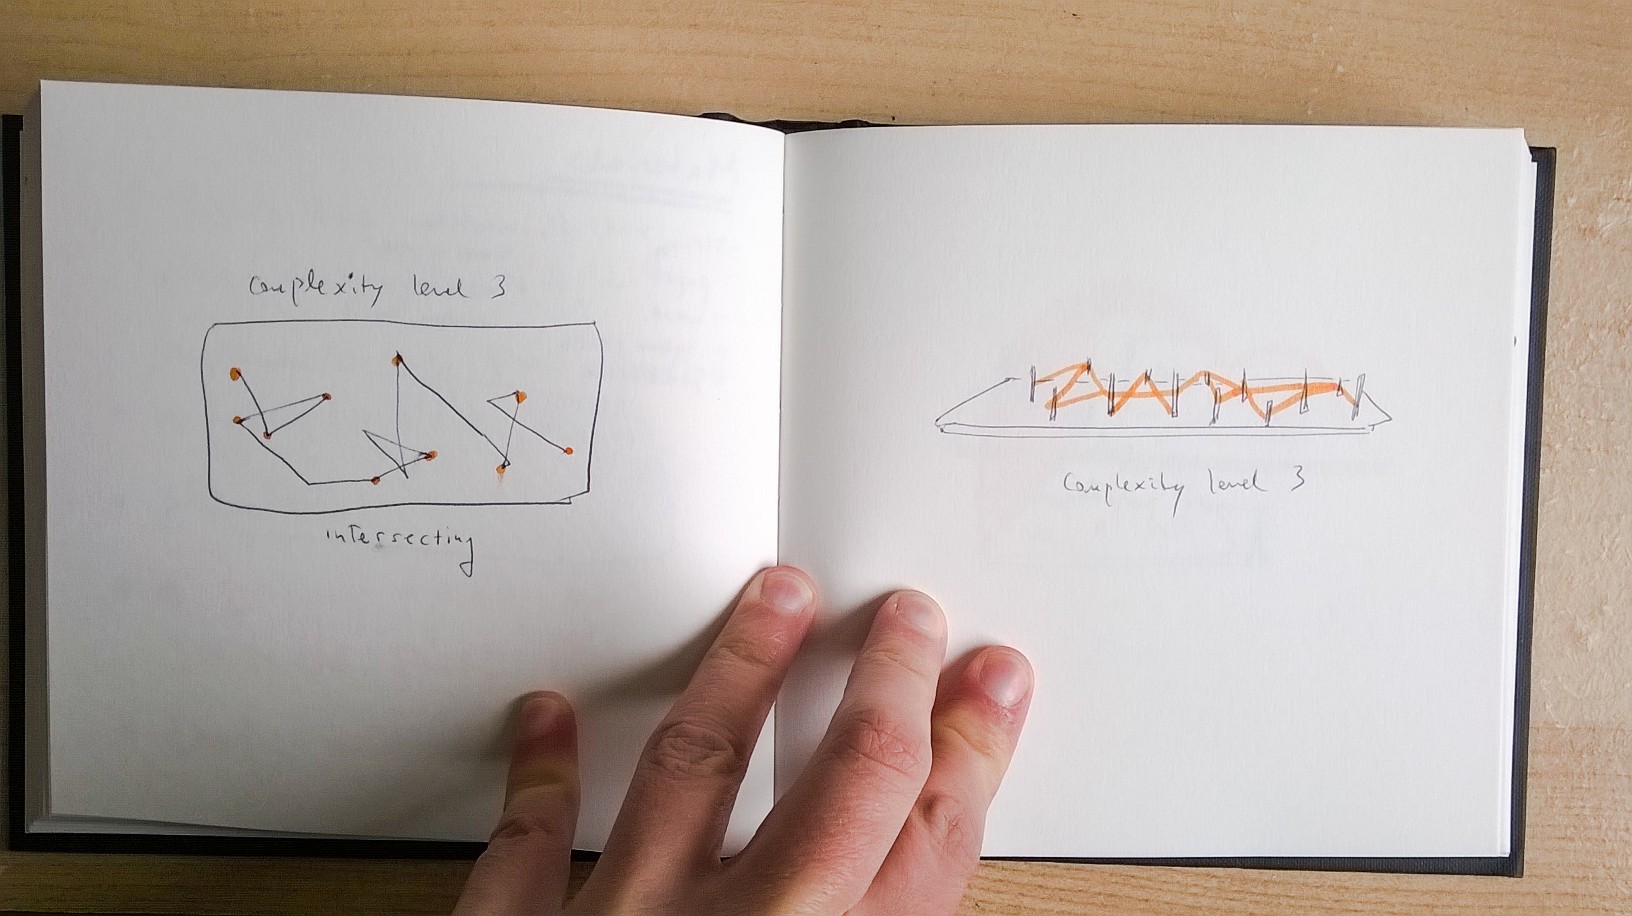 complexity level 3
intersecting
complexity level 3